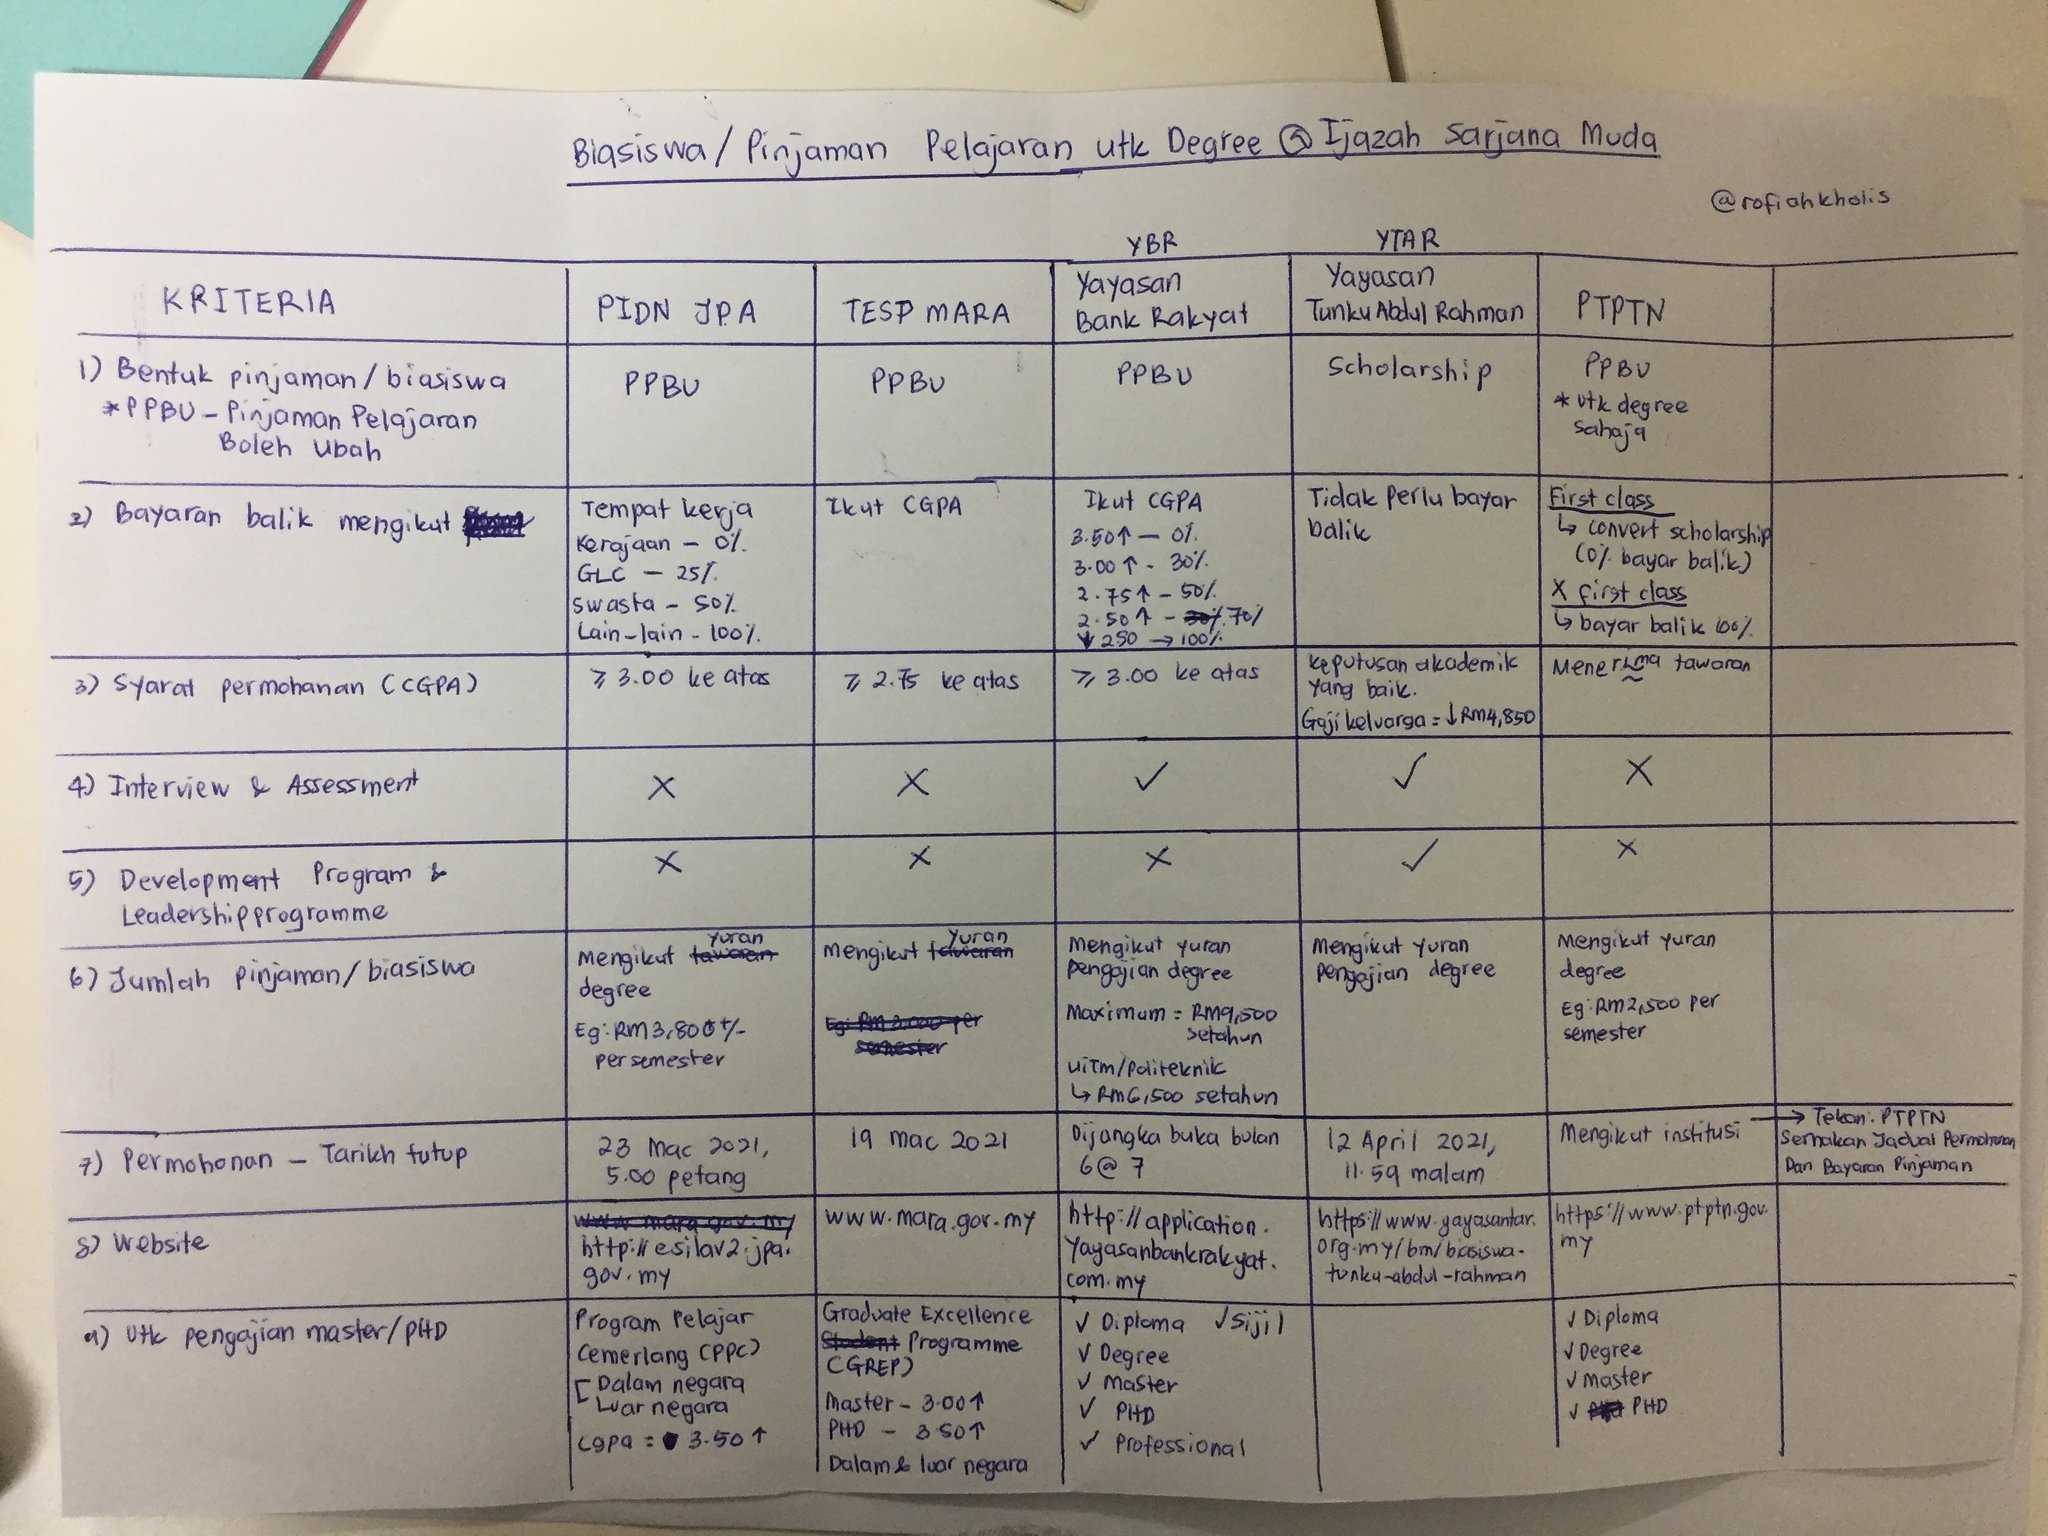 Biasiswa/Pinjaman Pelajaran utk Degree @ Ijazah Sarjana Muda
@rofiahkholis
YBR
YTAR
KRITERIA
PIDN JPA
TESP MARA
Yayasan
Bank Rakyat
Yayasan
Tunku Abdul Rahman
PTPTN
1) Bentuk pinjaman/biasiswa
*PPBU - Pinjaman Pelajaran
Boleh Ubah
PPBU
PPBU
PPBU
Scholarship
PPBU
* utk degree
sahaja
2) Bayaran balik mengikut
Tempat kerja
Kerajaan - 0%
GLC - 25%
Swasta - 50%
Lain-lain - 100%
Ikut CGPA
Ikut CGPA
3.50↑ - 0%
3.00↑ - 30%
2.75↑ - 50%
2.50↑ - 30% 70%
↓ 250 → 100%
Tidak perlu bayar
balik
First class
↳ convert scholarship
(0% bayar balik)
X first class
↳ bayar balik 100%
3) Syarat permohonan (CGPA)
≥ 3.00 ke atas
≥ 2.75 ke atas
≥ 3.00 ke atas
keputusan akademik
yang baik.
Gaji keluarga = ↓RM4,850
Menerima tawaran
4) Interview & Assessment
X
X
✓
✓
X
5) Development Program &
Leadership programme
X
X
X
✓
X
6) Jumlah pinjaman/biasiswa
yuran
Mengikut tawaran
degree
Eg: RM3,800 +/-
per semester
yuran
Mengikut tawaran
Eg: RM 3,000 per
semester
Mengikut yuran
pengajian degree
Maximum = RM9,500
setahun
UiTM/Politeknik
↳ RM6,500 setahun
Mengikut yuran
pengajian degree
Mengikut yuran
degree
Eg: RM2,500 per
semester
7) Permohonan - Tarikh tutup
23 Mac 2021,
5.00 petang
19 mac 2021
Dijangka buka bulan
6 @ 7
12 April 2021,
11.59 malam
Mengikut institusi
→ Tekan: PTPTN
Semakan Jadual Permohonan
Dan Bayaran Pinjaman
8) Website
www.mara.gov.my
http://esilav2.jpa.
gov.my
www.mara.gov.my
http://application.
yayasanbankrakyat.
com.my
https://www.yayasantar.
org.my/bm/biasiswa-
tunku-abdul-rahman
https://www.ptptn.gov.
my
9) Utk pengajian master/PHD
Program Pelajar
Cemerlang (PPC)
[ Dalam negara
Luar negara
cgpa = 3.50↑
Graduate Excellence
Student Programme
(GREP)
Master - 3.00↑
PHD - 3.50↑
Dalam & luar negara
✓ Diploma ✓ Sijil
✓ Degree
✓ Master
✓ PHD
✓ Professional
✓ Diploma
✓ Degree
✓ Master
✓ PHD